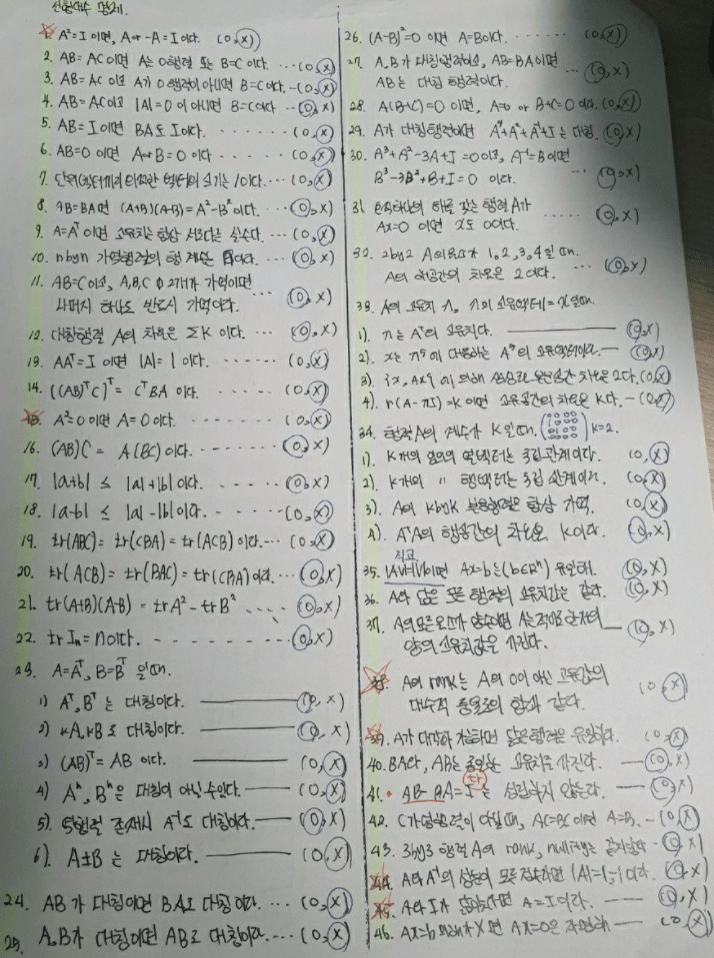 선형대수 명제.
1. A²=I 이면, A or -A = I 이다. (O,X)
2. AB=AC 이면 A는 0행렬 또는 B=C 이다. ... (O,X)
3. AB=AC 이고 A가 0행렬이 아니면 B=C이다. -- (O,X)
4. AB=AC이고 |A|=0 이 아니면 B=C이다 -- (O,X)
5. AB=I이면 BA도 I이다. - - - - - - (O,X)
6. AB=0 이면 A or B=0 이다 - - - - (O,X)
7. 단위벡터끼리 벡터의 크기는 1이다. ... (O,X)
8. AB=BA면 (A+B)(A-B)=A²-B²이다. ... (O,X)
9. A=Aᵀ이면 고유치는 항상 서로다른 실수다. ... (O,X)
10. n by n 가역행렬의 행 계수 이다. ... (O,X)
11. AB=C이고, A,B,C 中 2개가 가역이면
나머지 하나도 반드시 가역이다. ... (O,X)
12. 대칭행렬 A의 차원은 ΣK 이다. ... (O,X)
13. AAᵀ=I 이면 |A|=1 이다. ... (O,X)
14. ((AB)ᵀC)ᵀ = CᵀBA 이다. ... (O,X)
15. A²=0 이면 A=0이다. - - - - - - (O,X)
16. (AB)C = A(BC)이다. - - - - - (O,X)
17. |a+b| ≤ |a|+|b|이다. - - - - - (O,X)
18. |a-b| ≤ |a|-|b|이다. - - - - - (O,X)
19. tr(ABC) = tr(CBA) = tr(ACB)이다. --- (O,X)
20. tr(ACB) = tr(BAC) = tr(CBA)이다. ... (O,X)
21. tr(A+B)(A-B) = trA² - trB² - - - - (O,X)
22. tr Iₙ = n이다. - - - - - - - (O,X)
23. A=Aᵀ, B=Bᵀ 일때.
1) Aᵀ, Bᵀ는 대칭이다. ——— (O,X)
2) kA, kB도 대칭이다. ——— (O,X)
3) (AB)ᵀ = AB 이다. ——— (O,X)
4) Aⁿ, Bⁿ은 대칭이 아닐수있다. —— (O,X)
5) 역행렬 존재시 A⁻¹도 대칭이다. —— (O,X)
6) A±B 는 대칭이다. ——— (O,X)
24. AB가 대칭이면 BA도 대칭이다. ... (O,X)
25. A,B가 대칭이면 AB도 대칭이다. .... (O,X)
26. (A-B)²=0 이면 A=B이다. ....... (O,X)
27. A,B가 대칭행렬이고, AB=BA이면
AB는 대칭 행렬이다. ... (O,X)
28. A(B+C)=0 이면, A=0 or B+C=0 이다. (O,X)
29. A가 대칭행렬이면 A⁴+A²+A+I는 대칭. (O,X)
30. A³+A²-3A+I=0이고, A⁻¹=B이면
B³-3B²+B+I=0 이다. ... (O,X)
31. 하나의 해를 갖는 행렬 A가
Ax=0 이면 x도 0이다. ..... (O,X)
32. 2by2 A의 1,2,3,4일 때.
A의 공간의 차원은 2이다. ... (O,X)
33. A의 고유치 λ, λ의 고유벡터=x일때.
1). λ는 Aᵀ의 고유치다. ——— (O,X)
2). x는 λⁿ에 대응하는 Aⁿ의 고유벡터이다. — (O,X)
3) {x, Ax}에 의해 생성된 공간 차원은 2다. (O,X)
4). r(A-λI)=k이면 고유공간의 차원은 k다. — (O,X)
34. 행렬A의 계수가 K일때. K=2.
1). K개의 임의의 열벡터는 독립관계이다. (O,X)
2). K개의 " 행벡터는 독립 관계이다. (O,X)
3). A의 K by K 부분행렬은 항상 가역. (O,X)
4). AᵀA의 행공간의 차원은 K이다. (O,X)
35. 이면 Ax=b는 (b∈Rⁿ) 유일해. (O,X)
36. A와 닮은 모든 행렬의 고유치값은 같다. (O,X)
37. A의 모든 원소가 양수이면 A는 적어도 한개의
양의 고유치값을 가진다. — (O,X)
38. A의 rank는 A의 0이 아닌 고유값의
대수적 중복도의 합과 같다. (O,X)
39. A가 대각화 가능하면 닮은행렬은 유일하다. (O,X)
40. BA와, AB는 동일한 고유치를 가진다. — (O,X)
41. AB-BA=I는 성립하지 않는다. — (O,X)
tr
42. C가역행렬이 아닐때, AC=BC이면 A=B. - (O,X)
43. 3by3 행렬 A의 rank, nullity는 같지않다 - (O,X)
44. A와 A⁻¹의 성분이 모두 정수라면 |A|=1,-1 이다. (O,X)
45. A와 I가 닮았다면 A=I이다. —— (O,X)
46. Ax=b의 해가 X면 AX=0은 자명해 —— (O,X)